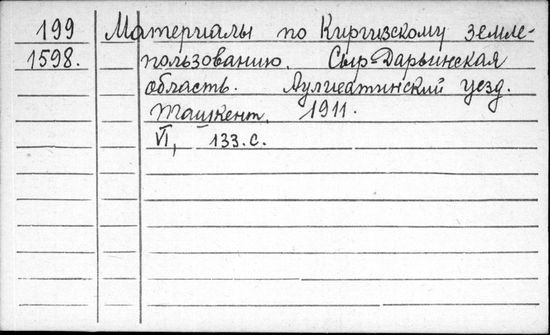 199 Материалы по Киргизскому земле-
1598. пользованию. Сыр-Дарьинская
область. Аулиеатинский уезд.
Ташкент. 1911.
VI, 133.с.